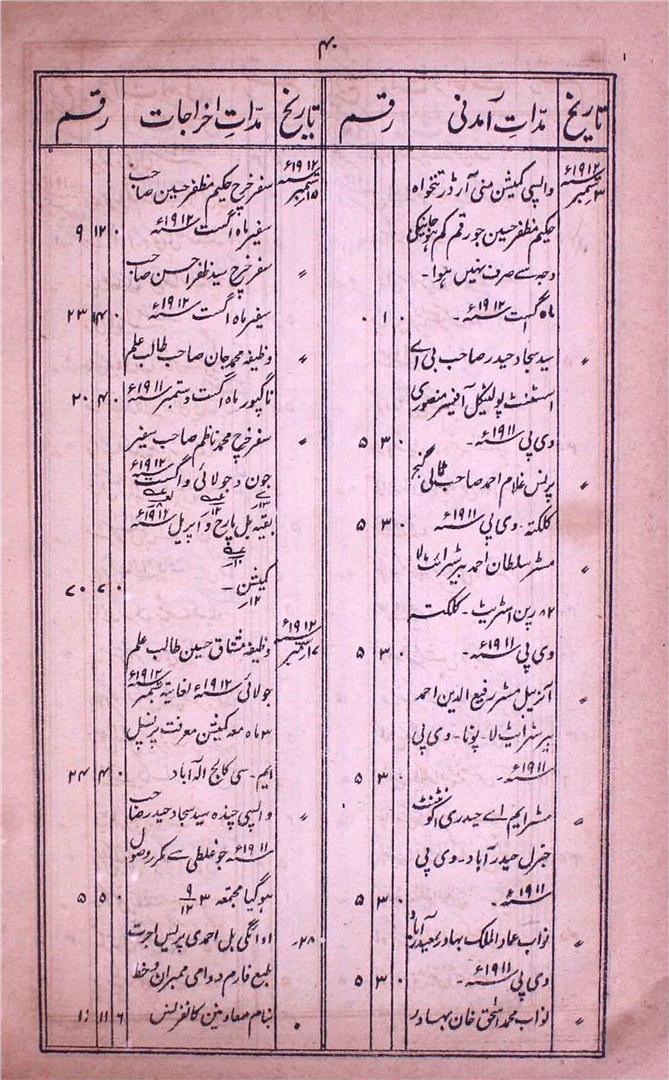 ۴۰
تاریخ مدّاتِ آمدنی رقم تاریخ مدّاتِ اخراجات رقم
۳ ستمبر ۱۹۱۲ء
واپسی کمیشن منی آرڈر تنخواہ
حکیم مظفر حسین جو رقم کم ہو جانیکی
وجہ سے صرف نہیں ہوا۔
ماہ اگست ۱۹۱۲ء۔ ۰ ۱ ۰
〃 سید سجاد حیدر صاحب بی اے
اسسٹنٹ پولیٹیکل آفیسر منصوری
وی پی ۱۹۱۱ء۔ ۵ ۳ ۰
〃 پرنس غلام احمد صاحب ٹالی گنج
کلکتہ۔ وی پی ۱۹۱۱ء ۵ ۳ ۰
〃 مسٹر سلطان احمد بیرسٹرائٹ لا
۸۲ رپن اسٹریٹ۔ کلکتہ
وی پی ۱۹۱۱ء۔ ۵ ۳ ۰
〃 آنریبل مسٹر رفیع الدین احمد
بیرسٹرایٹ لا۔ پونا۔ وی پی
۱۹۱۱ء۔ ۵ ۳ ۰
〃 مسٹر ایم اے حیدری اکونٹنٹ
جنرل حیدرآباد۔ وی پی
۱۹۱۱ء۔ ۵ ۳ ۰
〃 نواب عماد الملک بہادر حیدرآباد
وی پی ۱۹۱۱ء۔ ۵ ۳ ۰
〃 نواب محمد اسحٰق خان بہادر
۱۵ ستمبر ۱۹۱۲ء
سفر خرچ حکیم مظفر حسین صاحب
سفیر ماہ اگست ۱۹۱۲ء ۹ ۱۲ ۰
〃 سفر خرچ سید ظفر احسن صاحب
سفیر ماہ اگست ۱۹۱۲ء ۲۳ ۱۴ ۰
〃 وظیفہ محمد جان صاحب طالب علم
ناگپور ماہ اگست و ستمبر ۱۹۱۱ء ۲۰ ۴ ۰
〃 سفر خرچ محمد ناظم صاحب سفیر
جون و جولائی و اگست ۱۹۱۲ء
بقیہ بل مارچ و اپریل ۱۹۱۲ء
کمیشن۔
۱۲؍ ۷۰ ۷ ۰
۱۷ ستمبر ۱۹۱۲ء
وظیفہ مشتاق حسین طالب علم
جولائی ۱۹۱۲ء لغایۃ ستمبر ۱۹۱۲ء
۳ ماہ معہ کمیشن معرفت پرنسپل
ایم۔ سی کالج الہ آباد ۲۴ ۴ ۰
〃 واپسی چندہ سید سجاد حیدر صاحب
۱۹۱۱ء جو غلطی سے مکرر وصول
ہوگیا مجتمعہ ۳ ۹/۱۲ ۵ ۵ ۰
۲۸؍ ادائگی بل احمدی پریس اجرت
طبع فارم دوامی ممبران و خط
بنام معاونین کانفرنس ۱۱ ۱۱ ۶